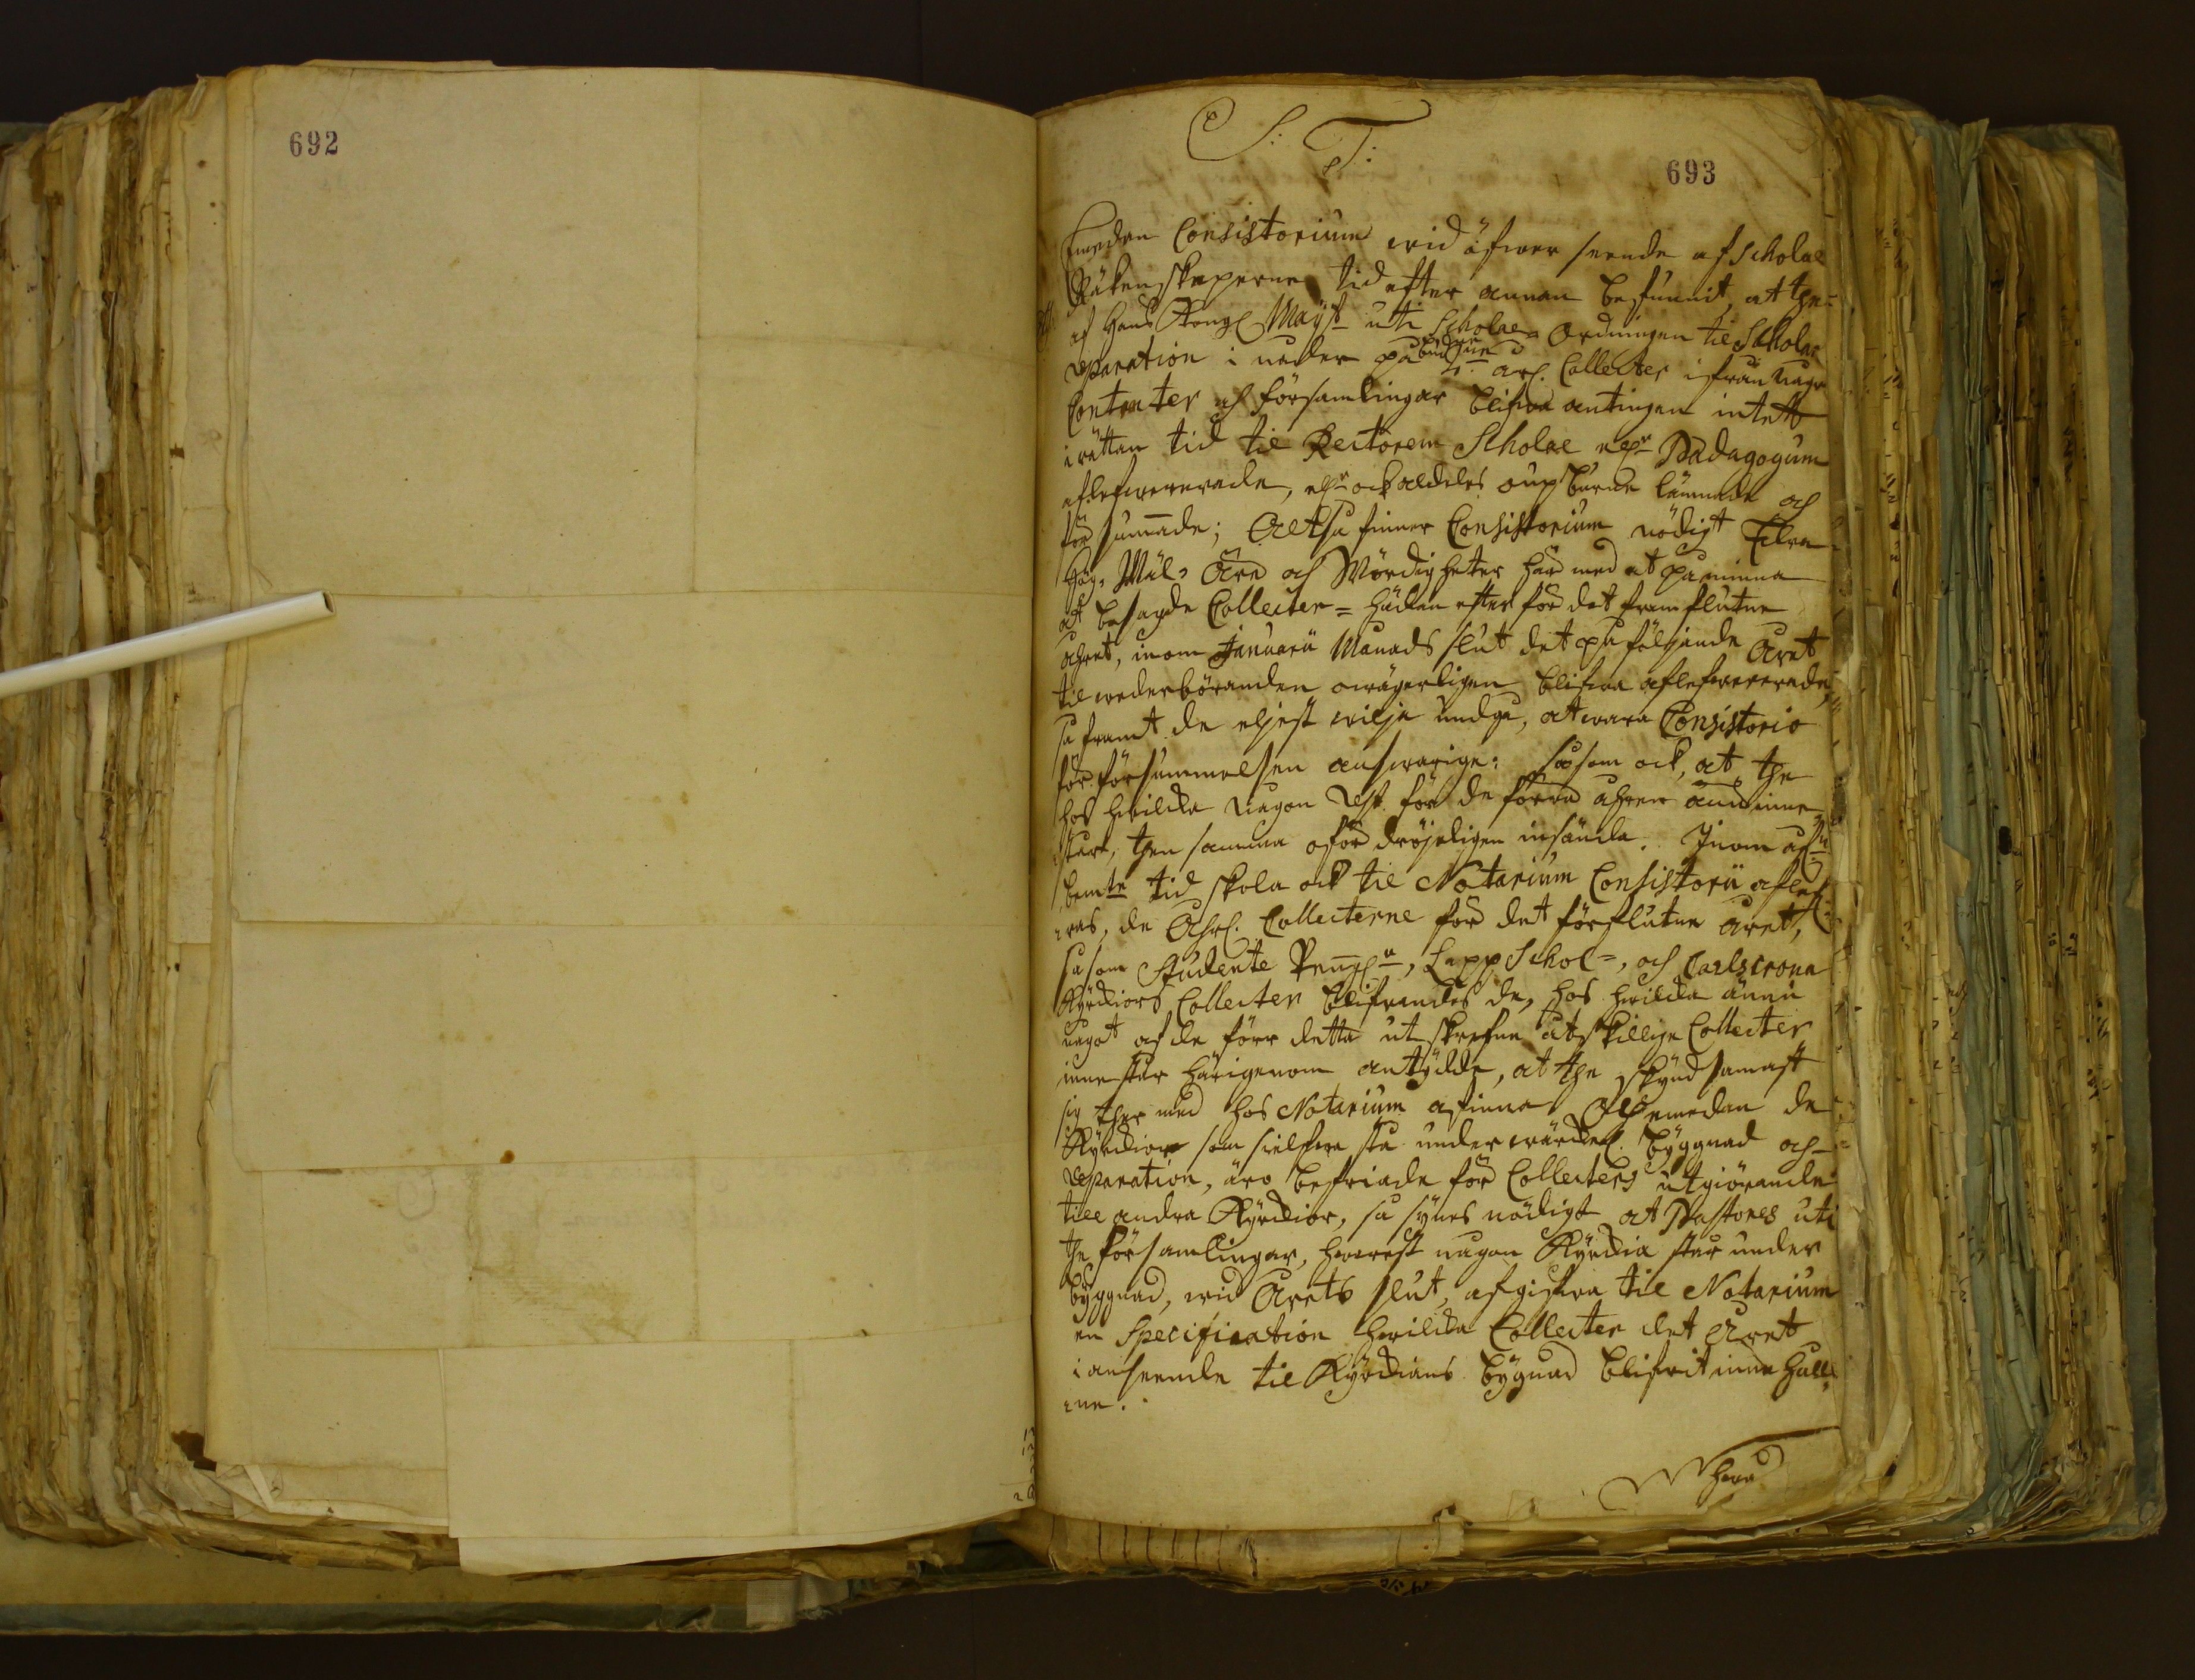 692
693
S: T:
Emedan Consistorium wid öfwer seende af Scholae
Räkenskaperne tid efter annan befunnit, at the
af Hans Kongl Mayst uti Scholae Ordningen til Scholae
reparation i nåder påbudne 2ne årl. Collecter ifrån någre
Contracter och församlingar blifwa antingen intet
i rättan tid til Rectorem Scholae ellr Pædagogum
aflefwererade, ellr ock aldeles oupburne lämnade och
försummade; Altså finner Consistorium nödigt Edra
Hög- Wäl- Äre och Wördigheter härmed at påminna
at besagde Collecter härefter för det framflutne
åhret, inom Januarii Månads slut det påföljande Året
til wederböranden owägerligen blifwa aflefwererade,
så framt de eljest wilja undgå, at wara Consistorio
för försummelsen answarige: såsom ock, at the
hos hwilka någon rest för de förra åhren ännu inne
står, then samma ofördröjeligen insända. Inom
bemte tid skola ock til Notarium Consistorii aflef
reras, de Åhrl. Collecterne för det förflutne året,
såsom Studente Penngr, Lapp Schol-, och Carlscrona
Kyrkiors Collecter blifwandes de, hos hwilka ännu
något af de förr detta utskrefne åtskillige Collecter
innestår härigenom antydde, at the skyndsamast
sig ther med hos Notarium afinna Och emedan de
Kyrkior som sielfwa stå under wärckl. byggnad och
reparation, äro befriade för Collecters utgiörande
till andra Kyrkior, så synes nödigt at Pastores uti
the församlingar, hwarest någon Kyrkia står under
byggnad, wid Årets slut, afgifwa til Notarium
en Specification hwilka Collecter det Året
i anseende til Kyrkians bygnad blifwit inne håll
ne.
hwa